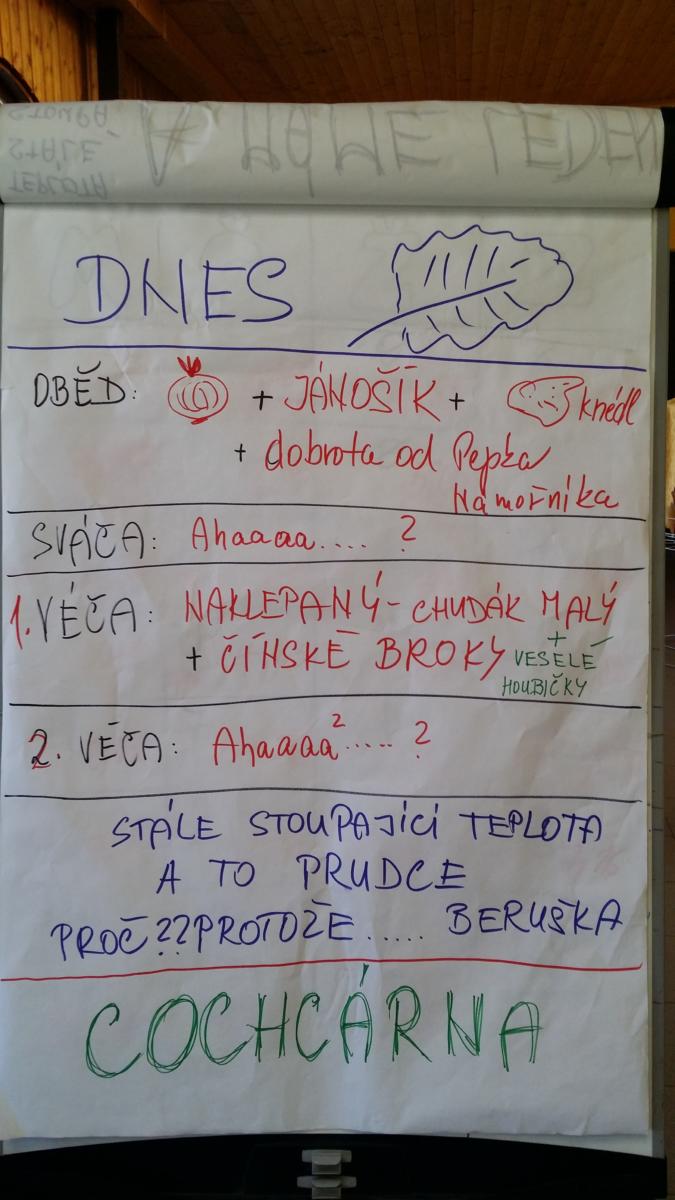 A MÁME LEDEN
STOUPÁ
STÁLE
TEPLOTA
DNES
OBĚD: + JÁNOŠÍK + knedl
+ dobrota od Pepka
Námořníka
SVÁČA: Ahaaaa.... ?
1. VÉČA: NAKLEPANÝ - CHUDÁK MALÝ
+ ČÍNSKÉ BROKY + VESELÉ
HOUBIČKY
2. VÉČA: Ahaaaa²..... ?
STÁLE STOUPAJÍCÍ TEPLOTA
A TO PRUDCE
PROČ?? PROTOŽE..... BERUŠKA
COCHCÁRNA